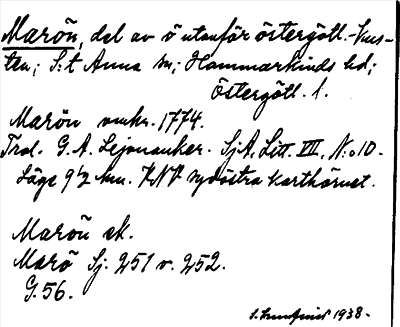 Marön, del av ö utanför östergötl.-kus-
ten; S:t Anna sn; Hammarkinds hd;
Östergötl. l.
Marön omkr. 1774.
Trol. G. A. Lejonanker. SjA, Litt. VII, N:o 10.
Läge 9 1/2 km. NV sydöstra karthörnet.
Marön ek.
Marö Sj. 251 v. 252.
G. 56.
1938.